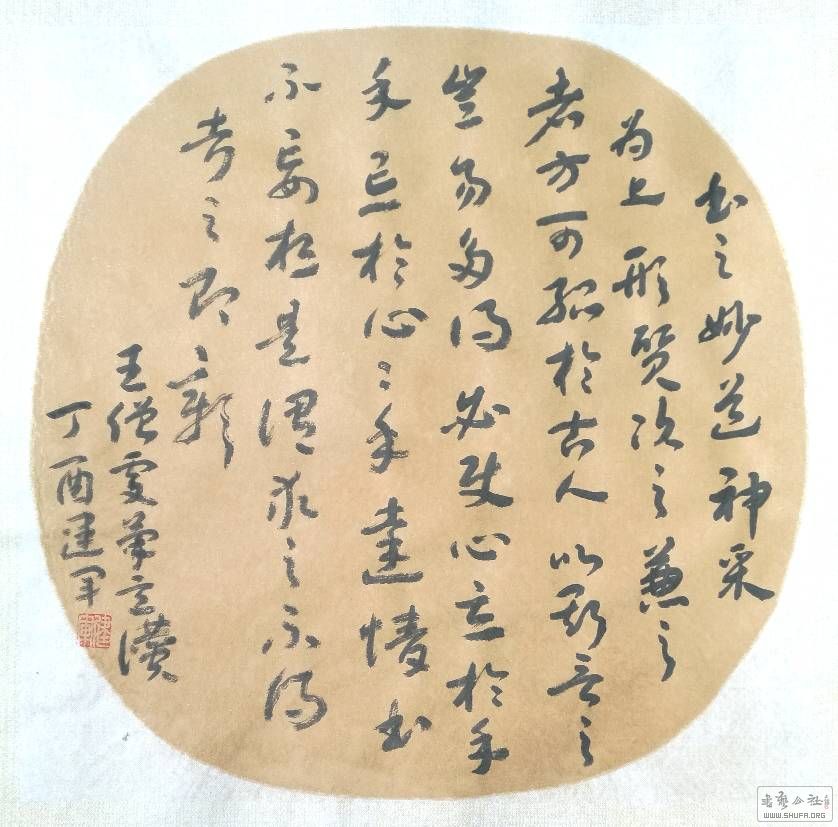 书之妙道神采
为上形質次之兼之
者方可紹於古人以斯言之
豈易多得必使心忘於手
手忘於心〻手達情书
不妄想是謂求之不得
考之即彰
王僧虔筆意讚
丁酉建軍
書藝公社
WWW.SHUFA.ORG